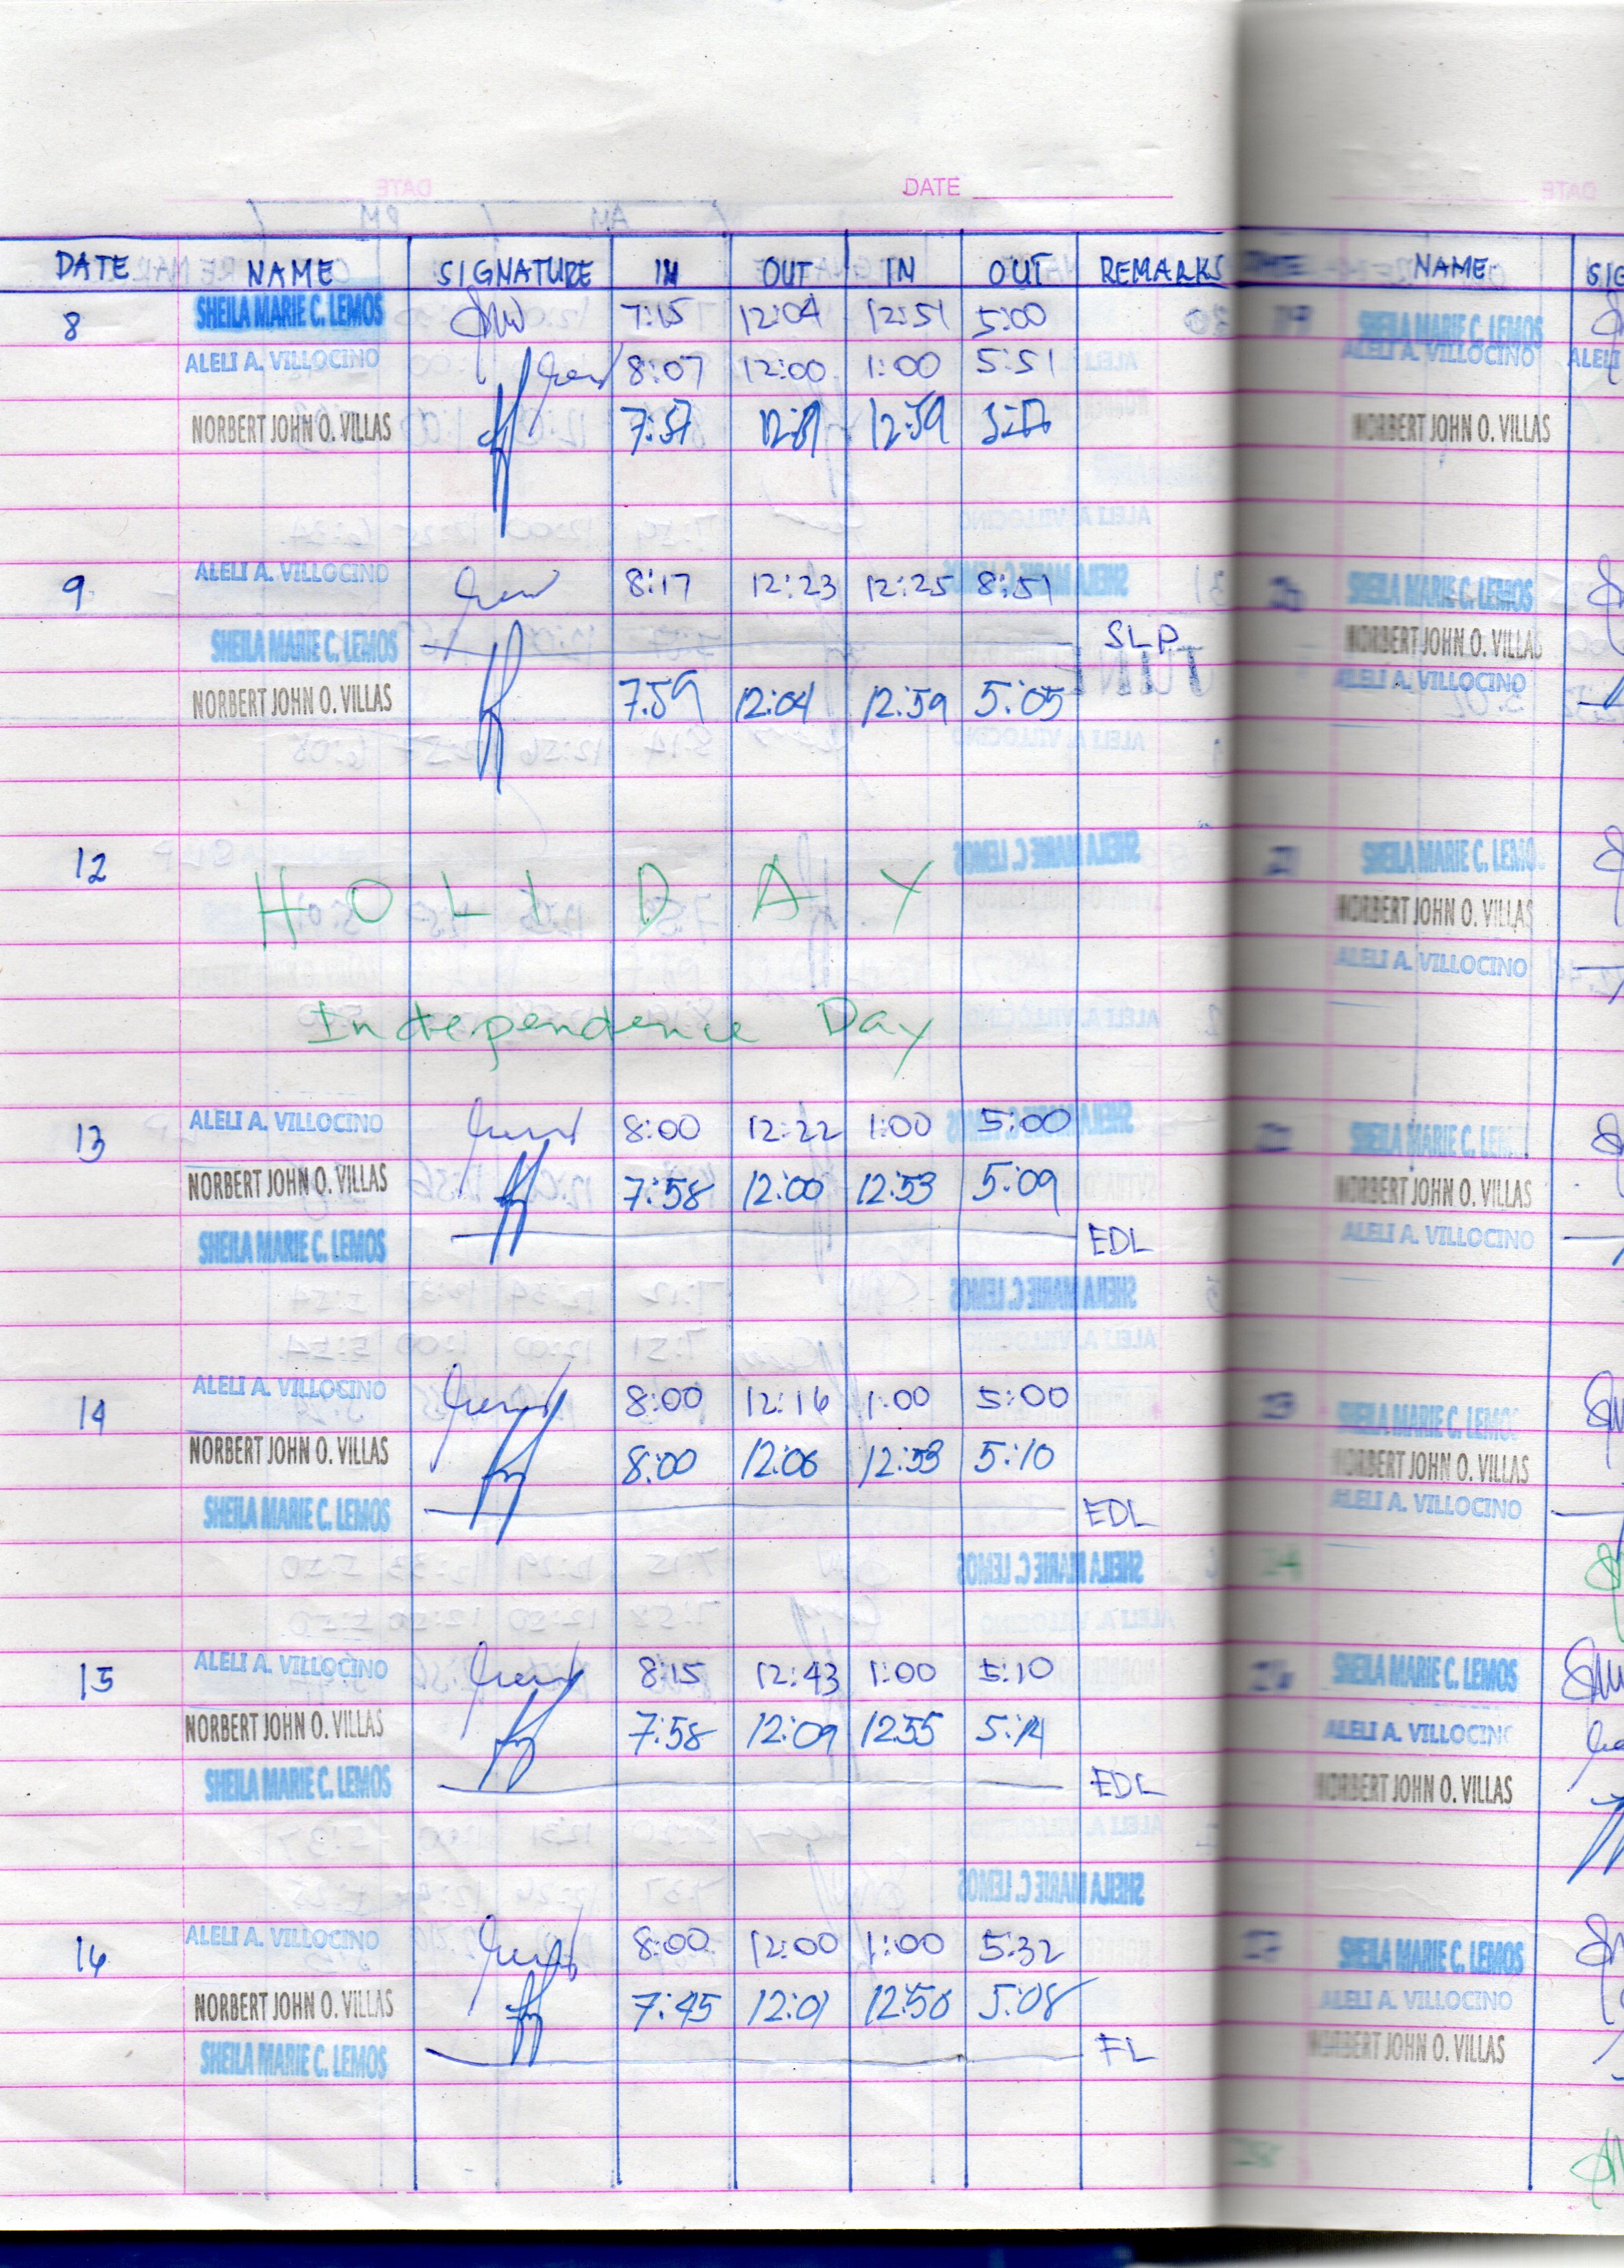 DATE
DATE NAME SIGNATURE IN OUT IN OUT REMARKS
8 SHEILA MARIE C. LEMOS 7:15 12:04 12:51 5:00
ALELI A. VILLOCINO 8:07 12:00 1:00 5:51
NORBERT JOHN O. VILLAS 7:57 12:59
9 ALELI A. VILLOCINO 8:17 12:23 12:25 8:51
SHEILA MARIE C. LEMOS SLP
NORBERT JOHN O. VILLAS 7:59 12:04 12:59 5:05
12 HOLIDAY
Independence Day
13 ALELI A. VILLOCINO 8:00 12:22 1:00 5:00
NORBERT JOHN O. VILLAS 7:58 12:00 12:53 5:09
SHEILA MARIE C. LEMOS EDL
14 ALELI A. VILLOCINO 8:00 12:16 1:00 5:00
NORBERT JOHN O. VILLAS 8:00 12:06 12:53 5:10
SHEILA MARIE C. LEMOS EDL
15 ALELI A. VILLOCINO 8:15 12:43 1:00 5:10
NORBERT JOHN O. VILLAS 7:58 12:09 12:55 5:14
SHEILA MARIE C. LEMOS EDL
16 ALELI A. VILLOCINO 8:00 12:00 1:00 5:32
NORBERT JOHN O. VILLAS 7:45 12:01 12:50 5:08
SHEILA MARIE C. LEMOS FL
NAME
SHEILA MARIE C. LEMOS
ALELI A. VILLOCINO ALELI
NORBERT JOHN O. VILLAS
SHEILA MARIE C. LEMOS
NORBERT JOHN O. VILLAS
ALELI A. VILLOCINO
SHEILA MARIE C. LEMOS
NORBERT JOHN O. VILLAS
ALELI A. VILLOCINO
SHEILA MARIE C. LEMOS
NORBERT JOHN O. VILLAS
ALELI A. VILLOCINO
SHEILA MARIE C. LEMOS
NORBERT JOHN O. VILLAS
ALELI A. VILLOCINO
SHEILA MARIE C. LEMOS
ALELI A. VILLOCINO
NORBERT JOHN O. VILLAS
SHEILA MARIE C. LEMOS
ALELI A. VILLOCINO
NORBERT JOHN O. VILLAS